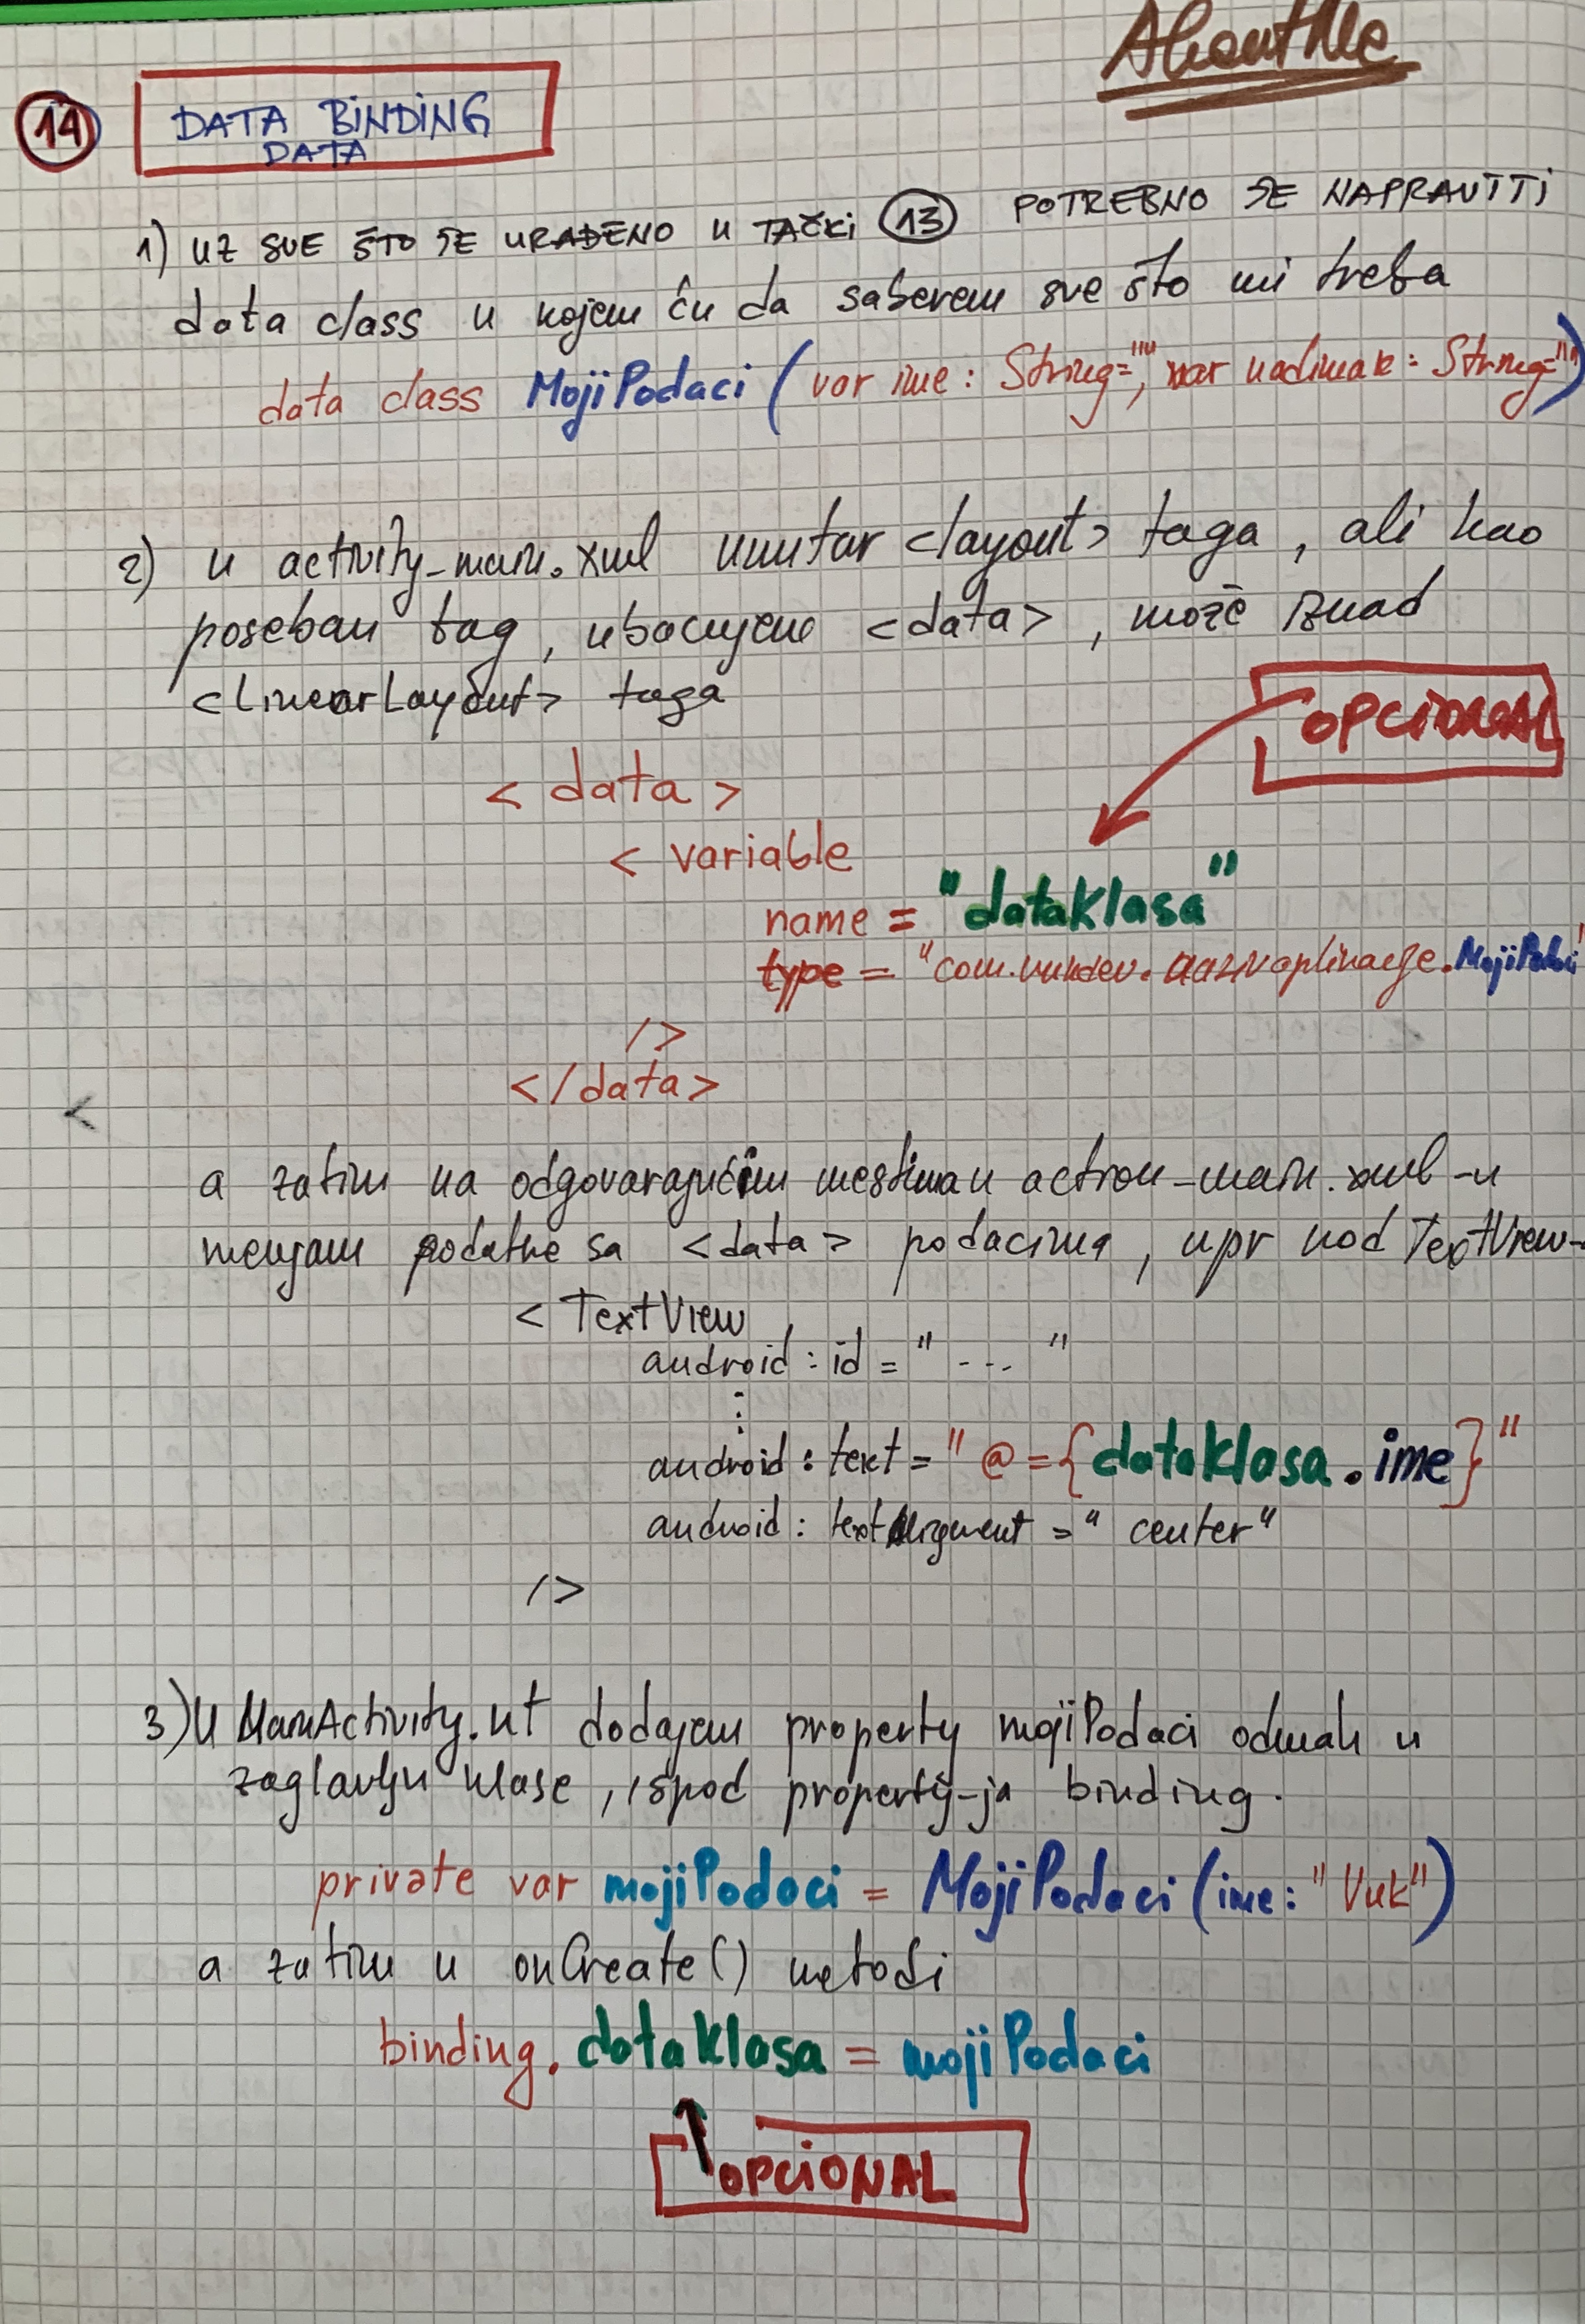 AboutMe
14 DATA BINDING
DATA
1) UZ SVE ŠTO JE URAĐENO U TAČKI 13 POTREBNO JE NAPRAVITI
data class u kojem ću da saberem sve što mi treba
data class MojiPodaci (var ime: String="", var nadimak: String="")
2) u activity_main.xml unutar <layout> taga, ali kao
poseban tag, ubacujem <data>, može iznad
<LinearLayout> taga
OPCIONAL
<data>
<variable
name = "dataKlasa"
type = "com.vukdev.nazivaplikacije.MojiPodaci"
/>
</data>
<
a zatim na odgovarajućim mestima u action_main.xml-u
menjam podatke sa <data> podacima, npr kod TextView-
<TextView
android:id = " --- "
⋮
android:text = "@={dataKlasa.ime}"
android:textAlignment = "center"
/>
3) U MainActivity.kt dodajem property mojiPodaci odmah u
zaglavlju klase, ispod property-ja binding.
private var mojiPodaci = MojiPodaci (ime: "Vuk")
a zatim u onCreate() metodi
binding.dataKlasa = mojiPodaci
OPCIONAL